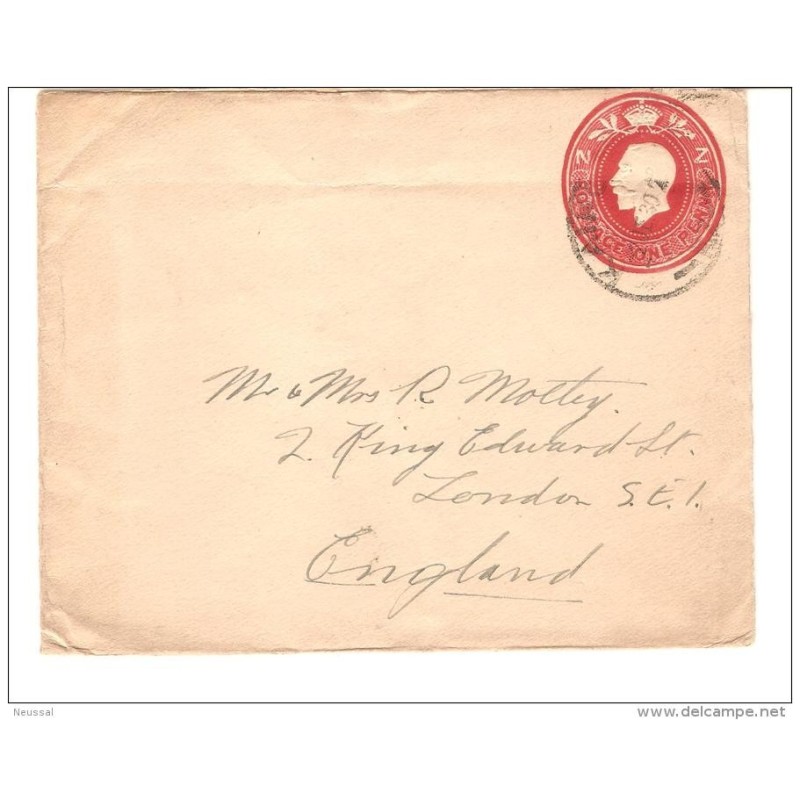 N Z
POSTAGE ONE PENNY
Mr & Mrs R Mottey.
2 King Edward St.
London S.E.1.
England
Neussal
www.delcampe.net